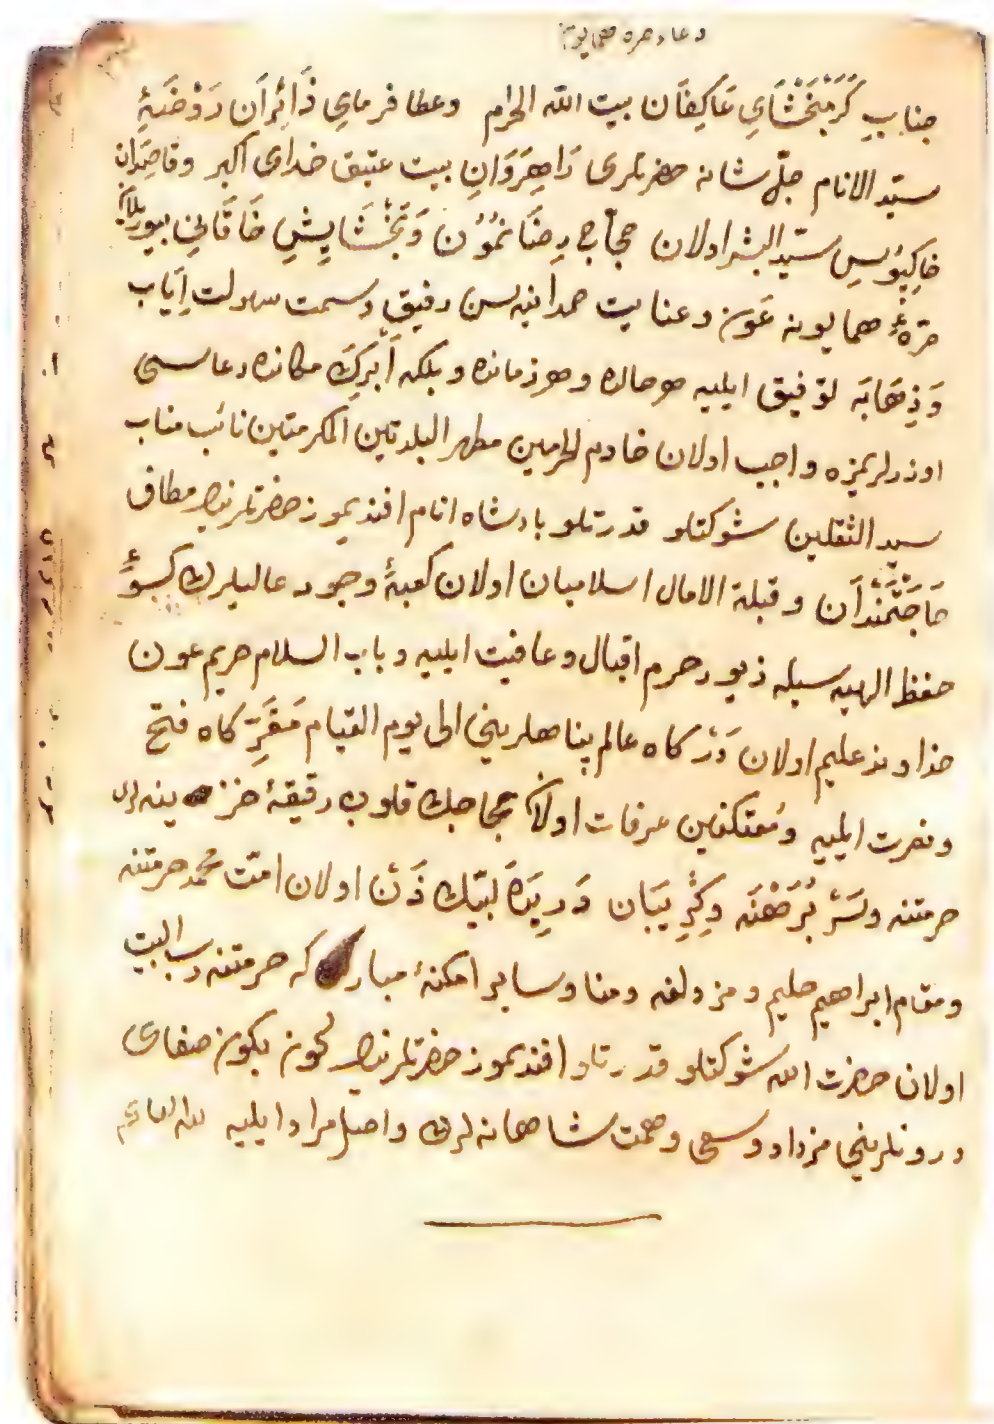 دعاء صره همایون
جناب كَرَمْبَخْشَايِ عَاكِفَان بيت الله الحرام وعطا فرمايِ زَائِرَان رَوْضَۀِ
سيّد الانام جلّ شانه حضرتلرى رَاهِرَوَانِ بيت عتيق خداى اكبر وقاصِدَان
خاكِبُوسِ سيّد البشر اولان حجاج رِضَا نمُون وَبَخْشَايِشِ خاقَانِي بيوريلان
صرّهٔ همايونه عَون وعنايت صمدانيه سن رفيق وسمت سهولت اِيَاب
وَذِهَابَه توفيق ايليه هر حالده وهر زمانده وبلكه اَبْرَكِ مكانده دعاسى
اوزرلريمزه واجب اولان خادم الحرمين مطهر البلدتين المكرمتين نائب مناب
سيد الثقلين شوكتلو قدرتلو پادشاه انام افنديموز حضرتلرينك مطاف
حَاجَتْمَنْدَان وقبلة الامال اسلاميان اولان كعبۀ وجود عاليلرك كسوۀ
حفظ الهيه سيله زيور حرم اقبال وعافيت ايليه وباب السلام حريم عون
خداوند عليم اولان دَرْكاه عالم پناهلرينى الى يوم القيام مَقَرّ كاه فتح
ونصرت ايليه ومُعتكفين عرفات اولان حجاجك قلوب رقيقۀ حزينه لرى
حرمتنه وسَرْ بُرَهْنَه وكِرِيبَان دَرِيدَهٔ لبّيك زَن اولان امّت محمد حرمتنه
ومقام ابراهيم حليم ومزدلفه ومنا وساير امكنۀ مباركه حرمتنه رب البيت
اولان حضرت الله شوكتلو قدرتلو افنديموز حضرتلرينك كون بكون صفاى
درونلرينى مزداد وسعى وهمت شاهانه لرك واصل مراد ايليه